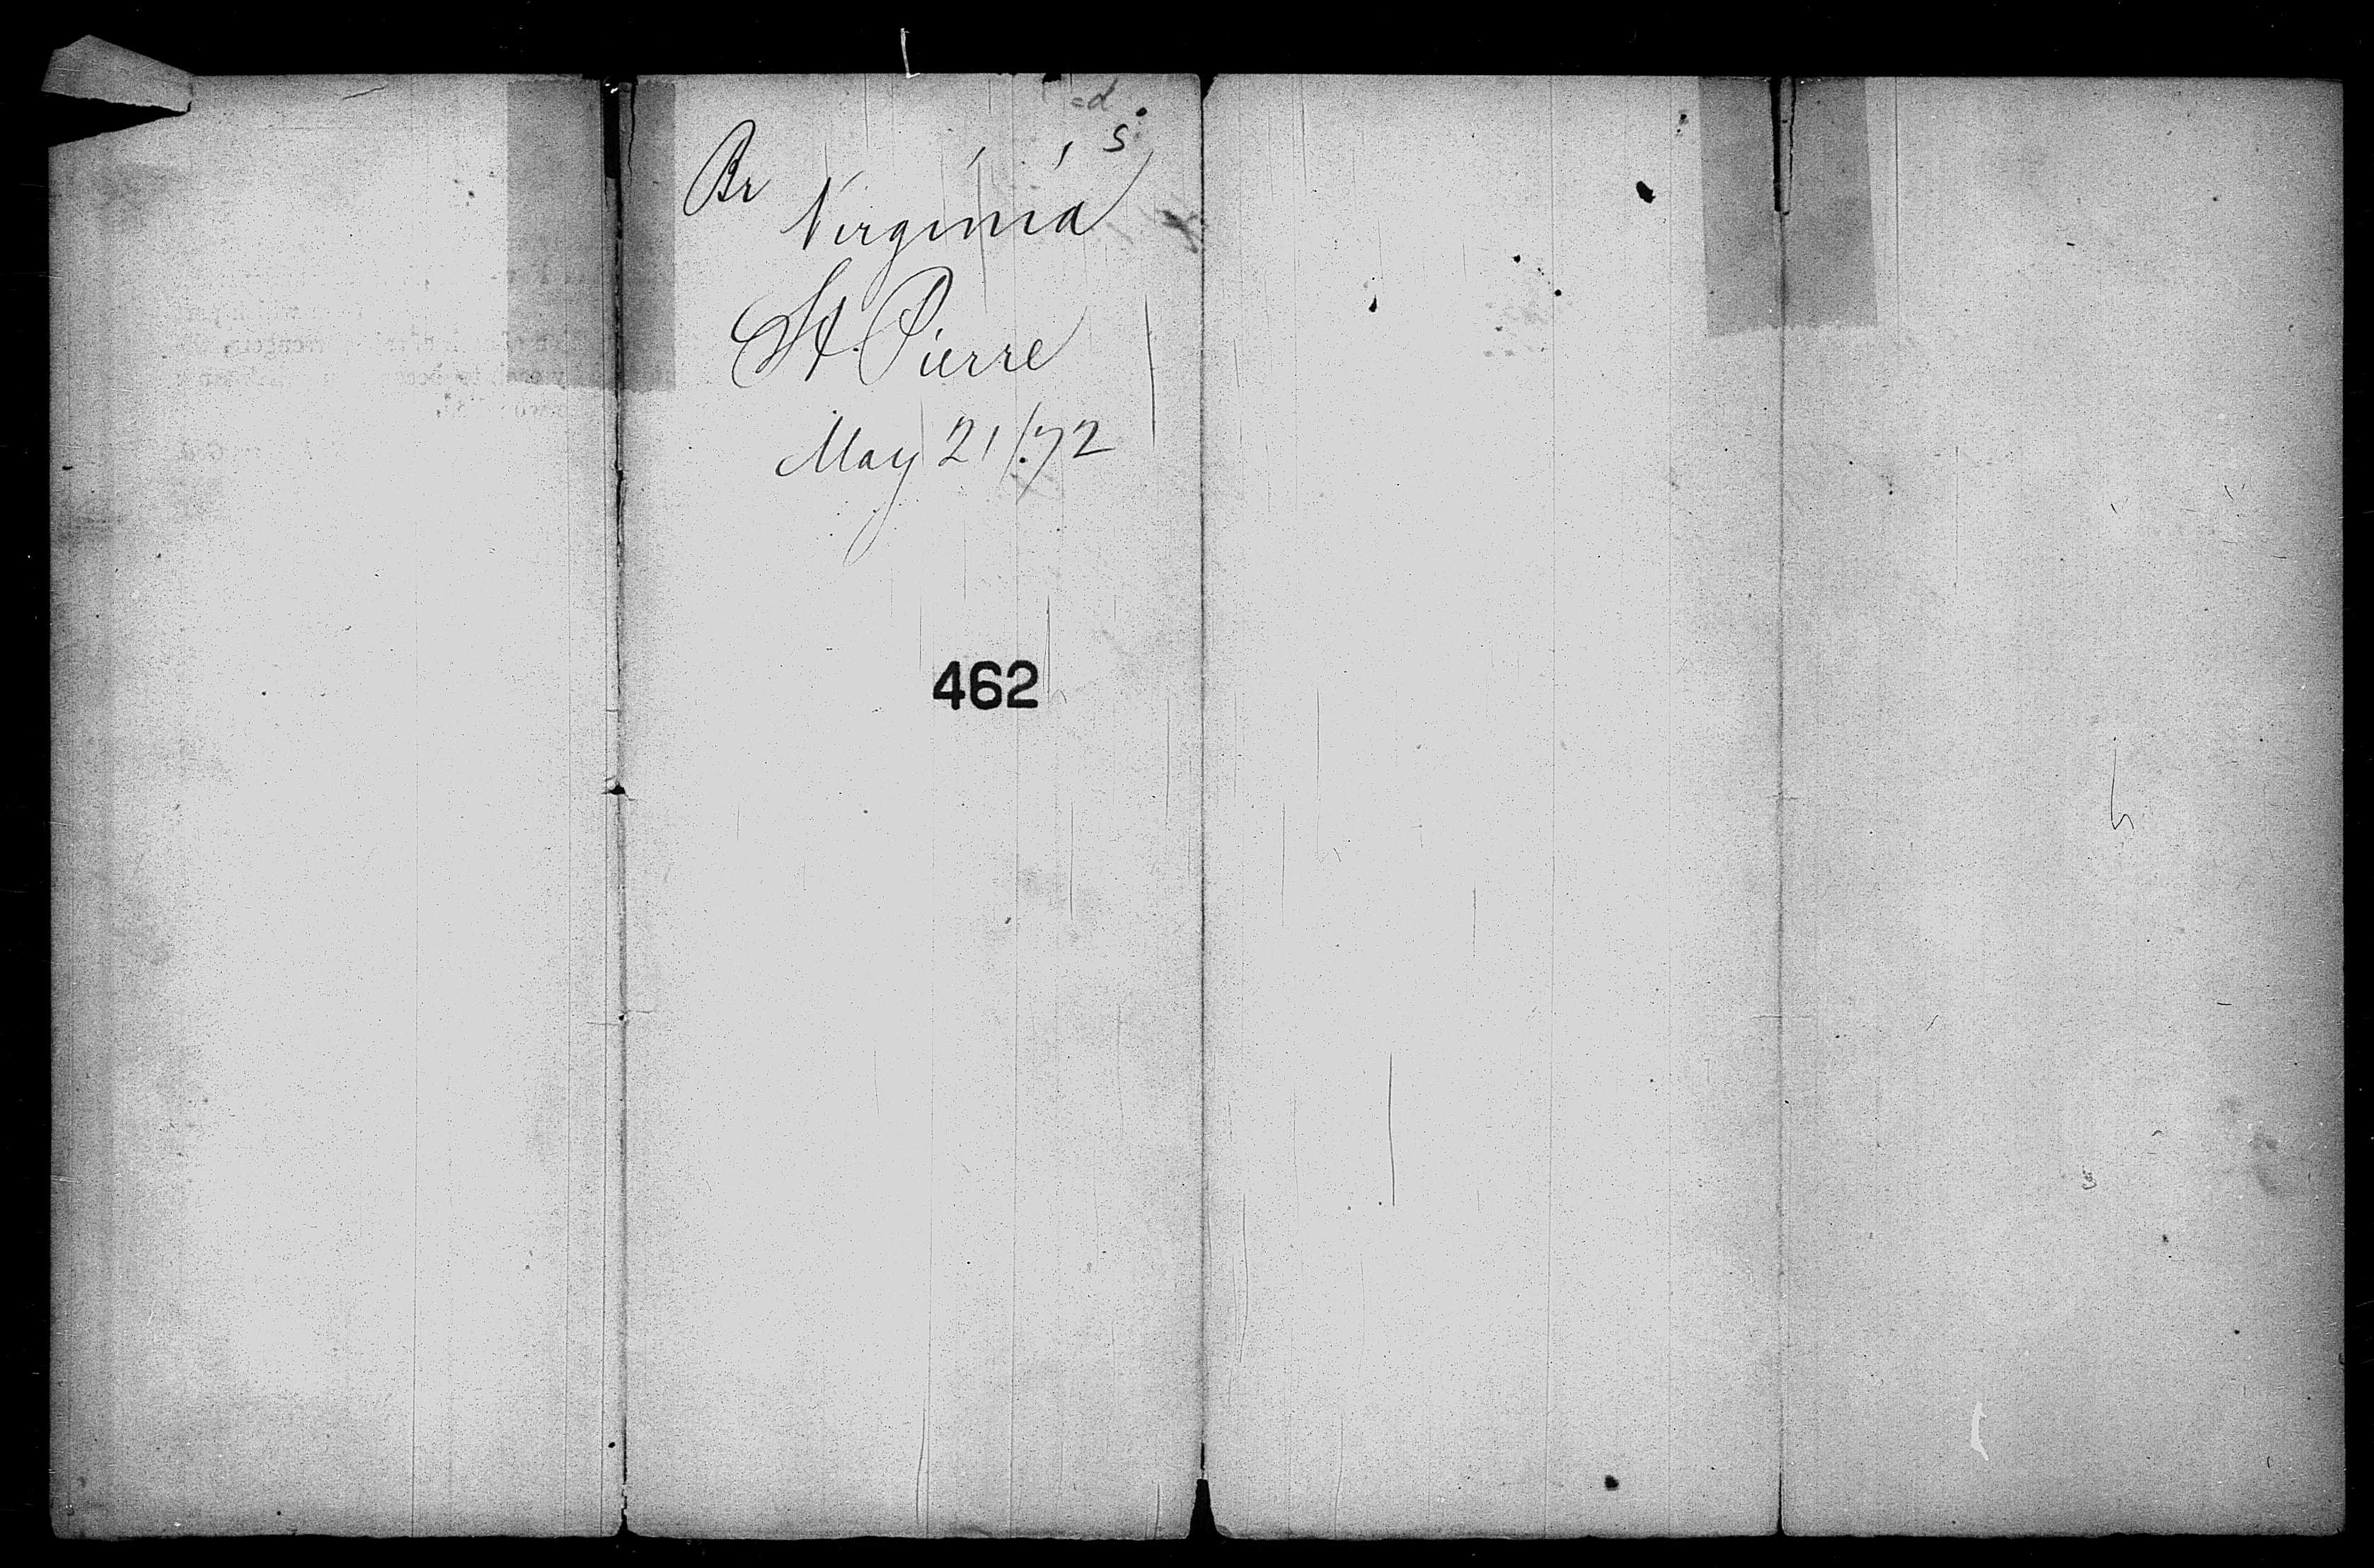 Br Virginia
St Pierre
May 21/72
462